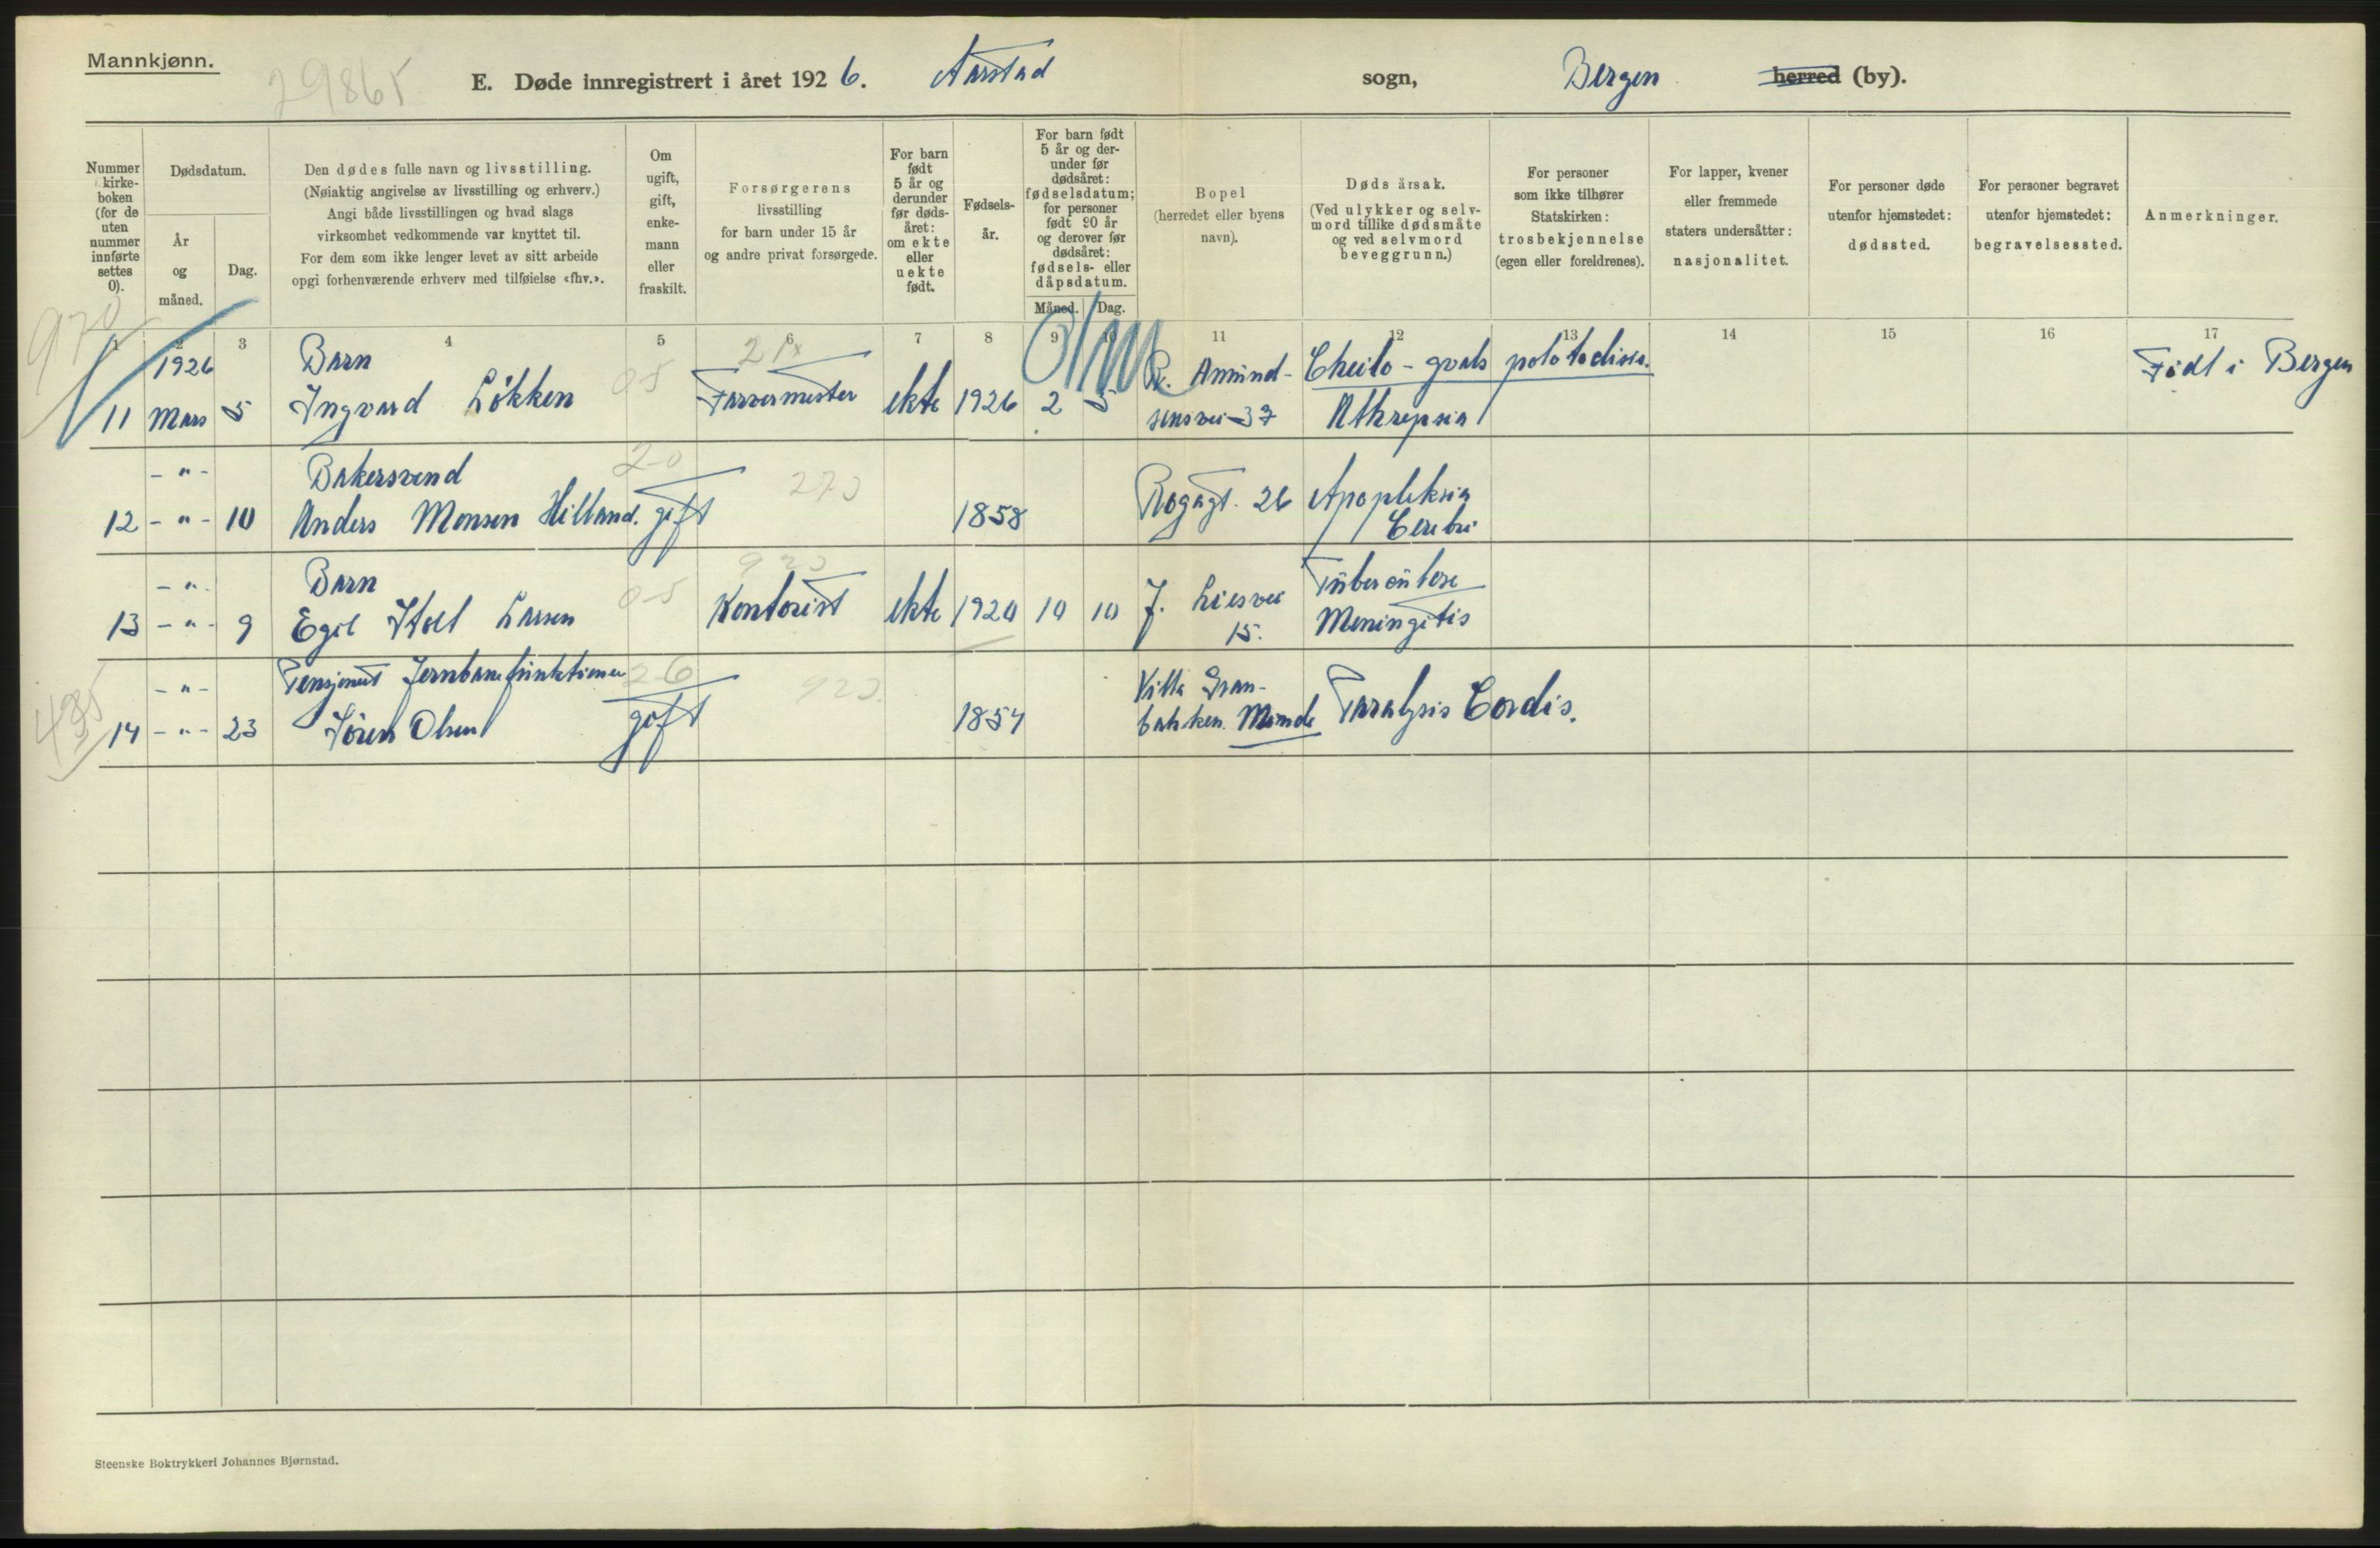 Mannkjønn.
29865
E. Døde innregistrert i året 1926. Aarstad sogn, Bergen herred (by).
Nummer i kirkeboken (for de uten nummer innførte settes 0).
Dødsdatum.
År og måned.
Dag.
Den dødes fulle navn og livsstilling.
(Nøiaktig angivelse av livsstilling og erhverv.)
Angi både livsstillingen og hvad slags
virksomhet vedkommende var knyttet til.
For dem som ikke lenger levet av sitt arbeide
opgi forhenværende erhverv med tilføielse «fhv.».
Om ugift, gift, enkemann eller fraskilt.
Forsørgerens
livsstilling
for barn under 15 år
og andre privat forsørgede.
For barn født 5 år og derunder før dødsåret: om ekte eller uekte født.
Fødselsår.
For barn født 5 år og derunder før dødsåret: fødselsdatum; for personer født 90 år og derover før dødsåret: fødsels- eller dåpsdatum.
Måned. Dag.
Bopel
(herredet eller byens
navn).
Døds årsak.
(Ved ulykker og selvmord tillike dødsmåte og ved selvmord beveggrunn.)
For personer
som ikke tilhører
Statskirken:
trosbekjennelse
(egen eller foreldrenes).
For lapper, kvener
eller fremmede
staters undersåtter:
nasjonalitet.
For personer døde
utenfor hjemstedet:
dødssted.
For personer begravet
utenfor hjemstedet:
begravelsessted.
Anmerkninger.
1 2 3 4 5 6 7 8 9 10 11 12 13 14 15 16 17
970
1926 Barn
11 Mars 5 Ingvard Løkken 05 Farvermester ekte 1926 2 5 R. Amundsensvei 37 Athrepsia Født i Bergen
- " - Bakersvend 20
12 - " - 10 Anders Monsen Hilland. gift 1858 26 Apopleksia Cerebri
- " - Barn
13 - " - 9 Egil Holt Larsen 05 Kontorist ekte 1920 10 10 J. Liesvei 15. Tuberculose Meningitis
435
- " - Pensjonert Jernbanefunktionær 26 920
14 - " - 23 Sören Olsen gift 1854 Villa Granbakken. Minde Paralysis Cordis.
Steenske Boktrykkeri Johannes Bjørnstad.